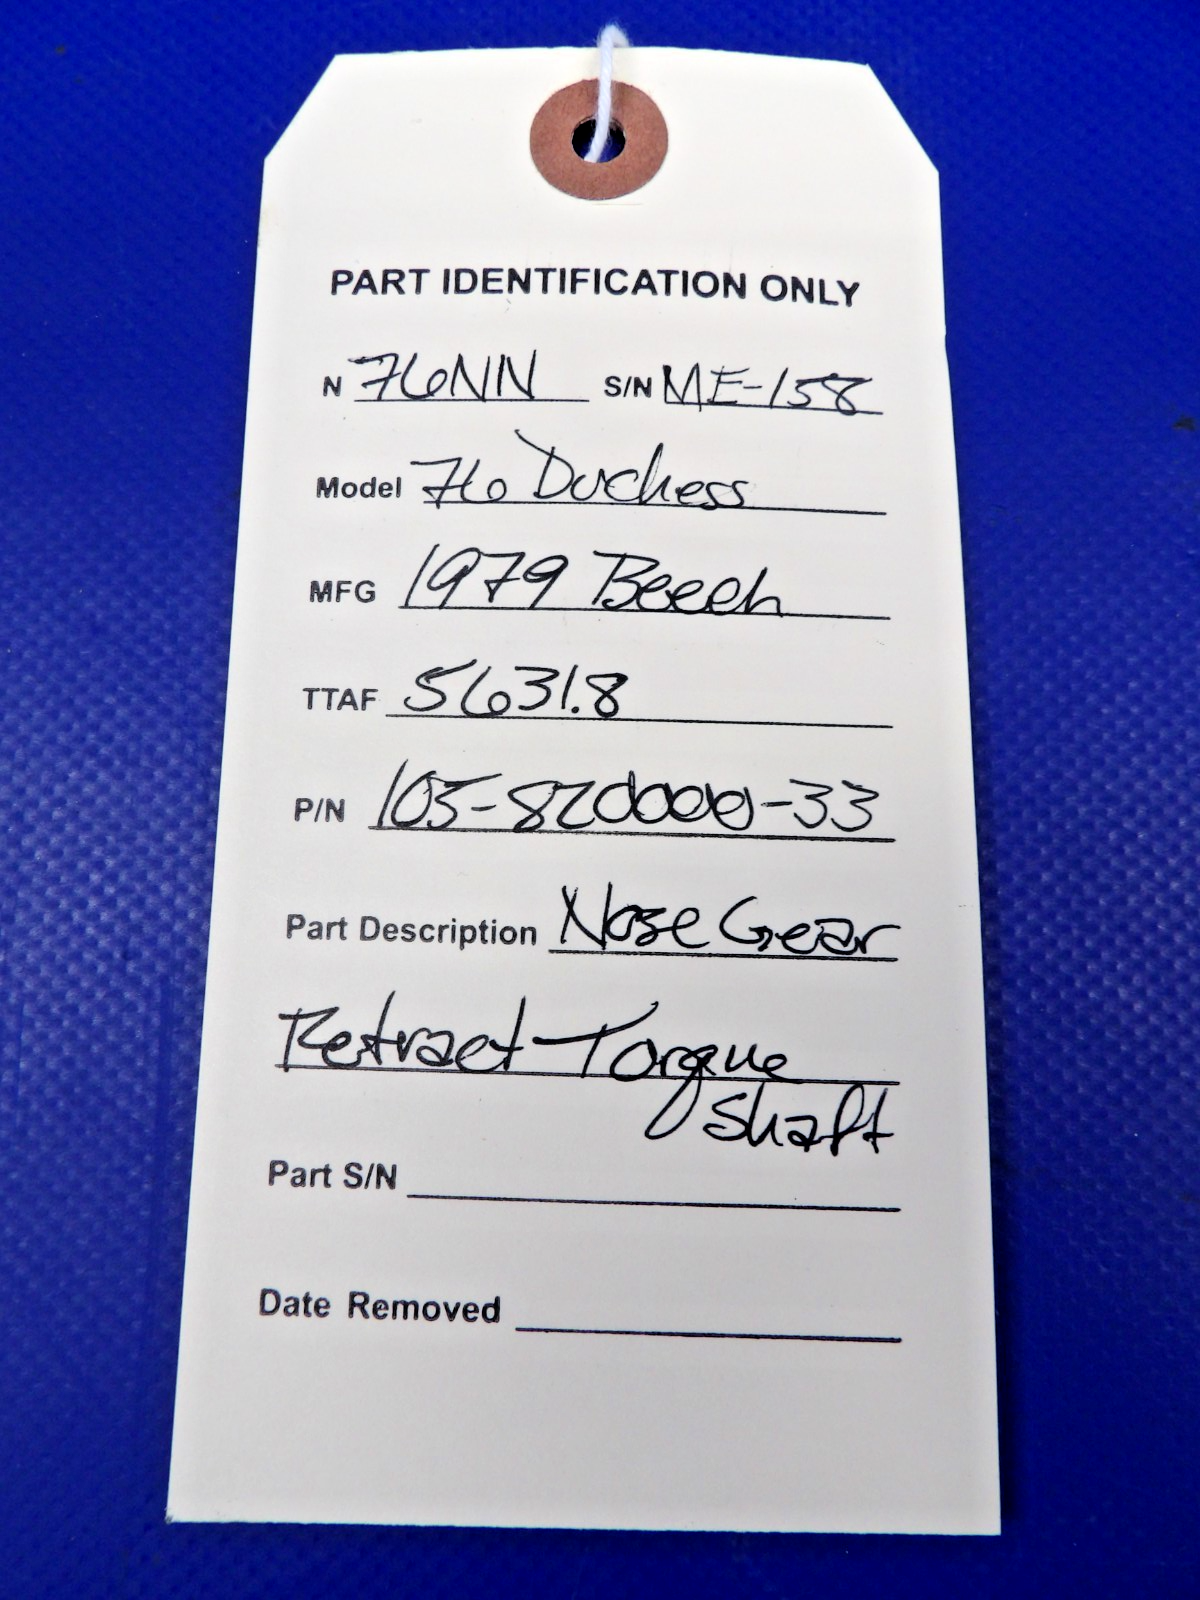 PART IDENTIFICATION ONLY
N 76NN S/N ME-158
Model 76 Duchess
MFG 1979 Beech
TTAF 5631.8
P/N 105-820000-33
Part Description Nose Gear
Retract Torque
Shaft
Part S/N
Date Removed